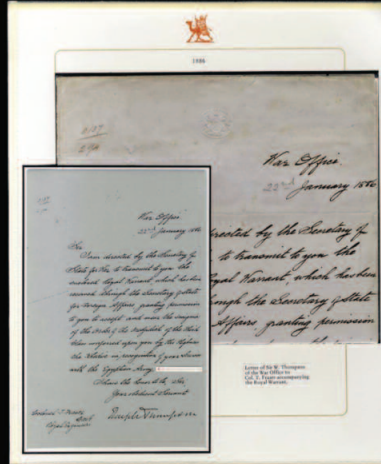 1886
War Office
22nd January 1886
directed by the Secretary of
to transmit to you the
Royal Warrant, which has been
through the Secretary of State
Affairs, granting permission
War Office
22nd January 1886
Sir
I am directed by the Secretary of
State for War, to transmit to you the
Royal Warrant, which has been
received through the Secretary of State
for Foreign Affairs, granting permission
to you to accept and wear the insignia
of the Order of the
conferred upon you by
the Khedive in recognition of your Services
with the Egyptian Army
I have the honor to be, Sir,
Your obedient Servant
Letter of Sir R. Thompson
of the War Office to
accompanying
the Royal Warrant.